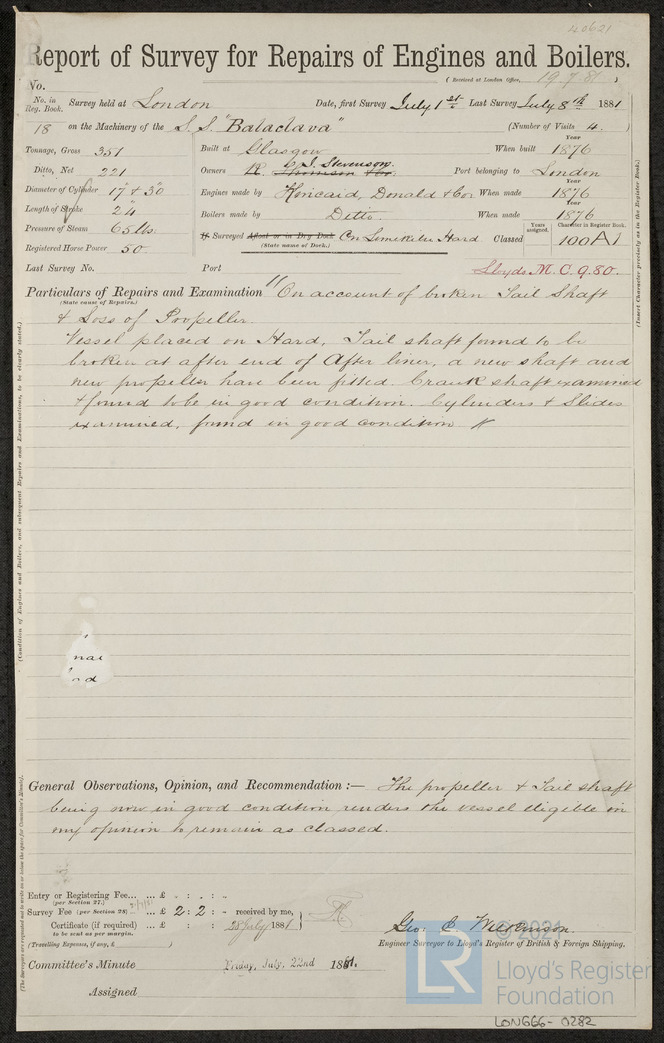 40621
Report of Survey for Repairs of Engines and Boilers.
(Received at London Office, 19.7.81)
No.
No. in Reg. Book. Survey held at London Date, first Survey July 1st Last Survey July 8th 1881
18 on the Machinery of the S.S. "Balaclava" (Number of Visits 4.)
Tonnage, Gross 351 Built at Glasgow When built Year 1876
Ditto, Net 221 Owners R. Thomson C. J. Stevenson. Port belonging to London
Diameter of Cylinder 17" & 30" Engines made by Kincaid, Donald & Co. When made Year 1876
Length of Stroke 24 Boilers made by Ditto. When made Year 1876
Pressure of Steam 65 lbs.
Registered Horse Power 50. If Surveyed Afloat or in Dry Dock On Limekiln Hard Classed Years assigned. Character in Register Book. 100A1
(State name of Dock.)
Last Survey No. Port Lloyds M.C. 9.80.
Particulars of Repairs and Examination "On account of broken Tail Shaft
(State cause of Repairs.)
& Loss of Propeller
Vessel placed on Hard, Tail shaft found to be
broken at after end of After liner, a new shaft and
new propeller have been fitted. Crank shaft examined
& found to be in good condition. Cylinders & Slides
examined, found in good condition
(Condition of Engines and Boilers, and subsequent Repairs and Examinations, to be clearly stated.)
(Insert Character precisely as in the Register Book.)
General Observations, Opinion, and Recommendation :— The propeller & Tail shaft
being now in good condition renders the vessel eligible in
my opinion to remain as classed.
Entry or Registering Fee... ... £ - : - : -
(per Section 27.)
Survey Fee (per Section 28) ... £ 2 : 2 : - received by me,
Certificate (if required) ... £ : : 28 July 1881
to be sent as per margin.
(Travelling Expenses, if any, £ )
Geo. C. Wilkinson.
Engineer Surveyor to Lloyd's Register of British & Foreign Shipping.
Committee's Minute Friday, July, 22nd 1881.
Assigned
© 2021
LR
Lloyd's Register
Foundation
LON666-0282